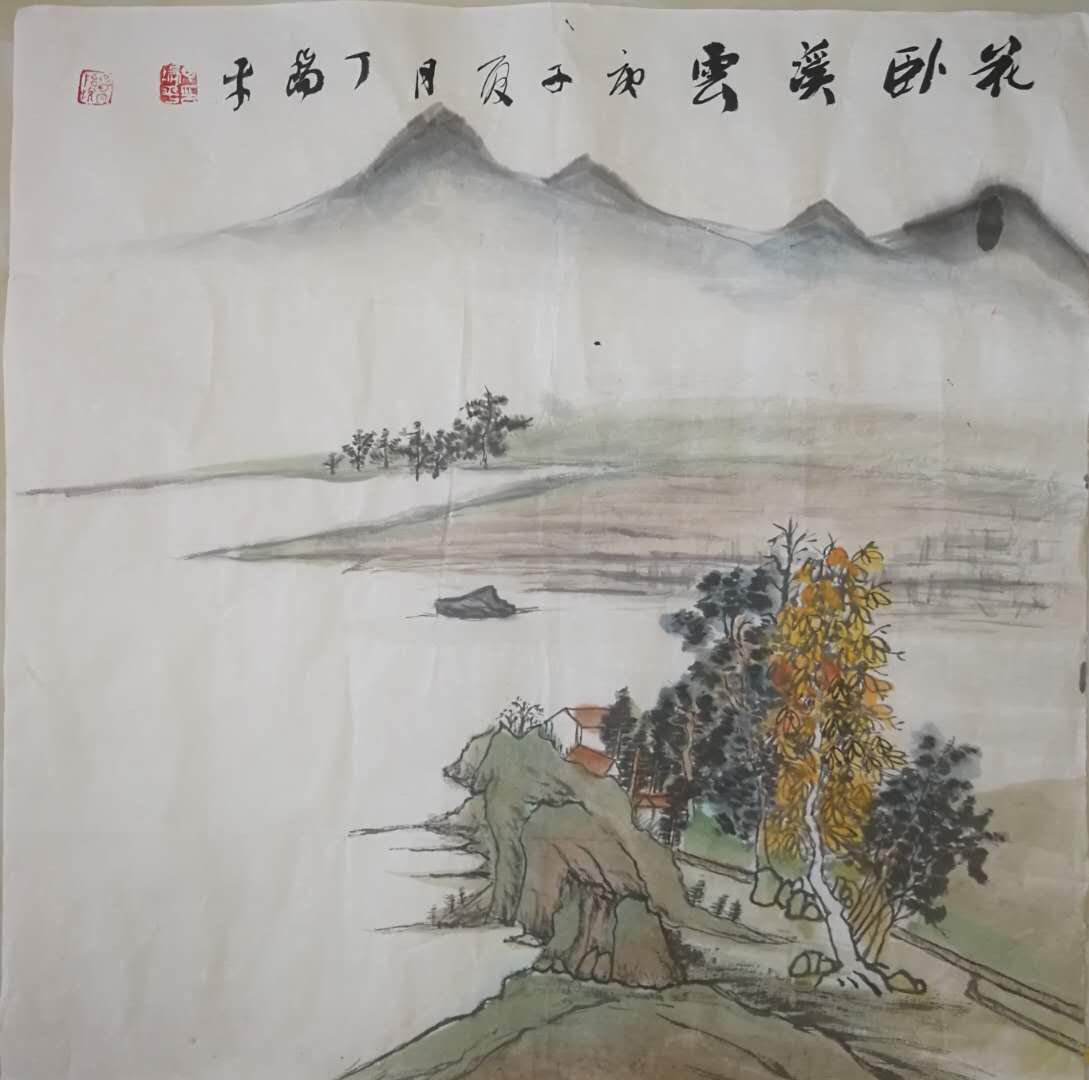 花卧溪雲 庚子夏月丁 平